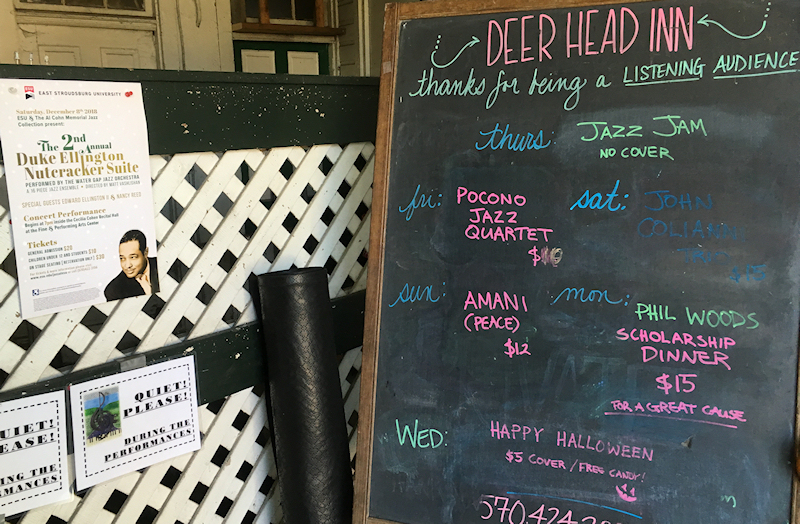 EAST STROUDSBURG UNIVERSITY
Saturday, December 8th 2018
ESU & The Al Cohn Memorial Jazz
Collection present:
The 2nd Annual
Duke Ellington
Nutcracker Suite
PERFORMED BY THE WATER GAP JAZZ ORCHESTRA
A 16 PIECE JAZZ ENSEMBLE • DIRECTED BY MATT VASHLISHAN
SPECIAL GUESTS EDWARD ELLINGTON II & NANCY REED
Concert Performance
Begins at 7pm inside the Cecilia Cohen Recital Hall
at the Fine & Performing Arts Center
Tickets
GENERAL ADMISSION $20
CHILDREN UNDER 12 AND STUDENTS $10
ON STAGE SEATING (RESERVATION ONLY) $30
QUIET!
PLEASE!
DURING THE
PERFORMANCES
QUIET!
PLEASE!
DURING THE
PERFORMANCES
DEER HEAD INN
thanks for being a LISTENING AUDIENCE
thurs: JAZZ JAM
NO COVER
fri: POCONO
JAZZ
QUARTET
sat: JOHN
COLIANNI
sun: AMANI
(PEACE)
$12
mon: PHIL WOODS
SCHOLARSHIP
DINNER
$15
FOR A GREAT CAUSE
WED: HAPPY HALLOWEEN
$5 COVER / FREE CANDY!
570.424.2